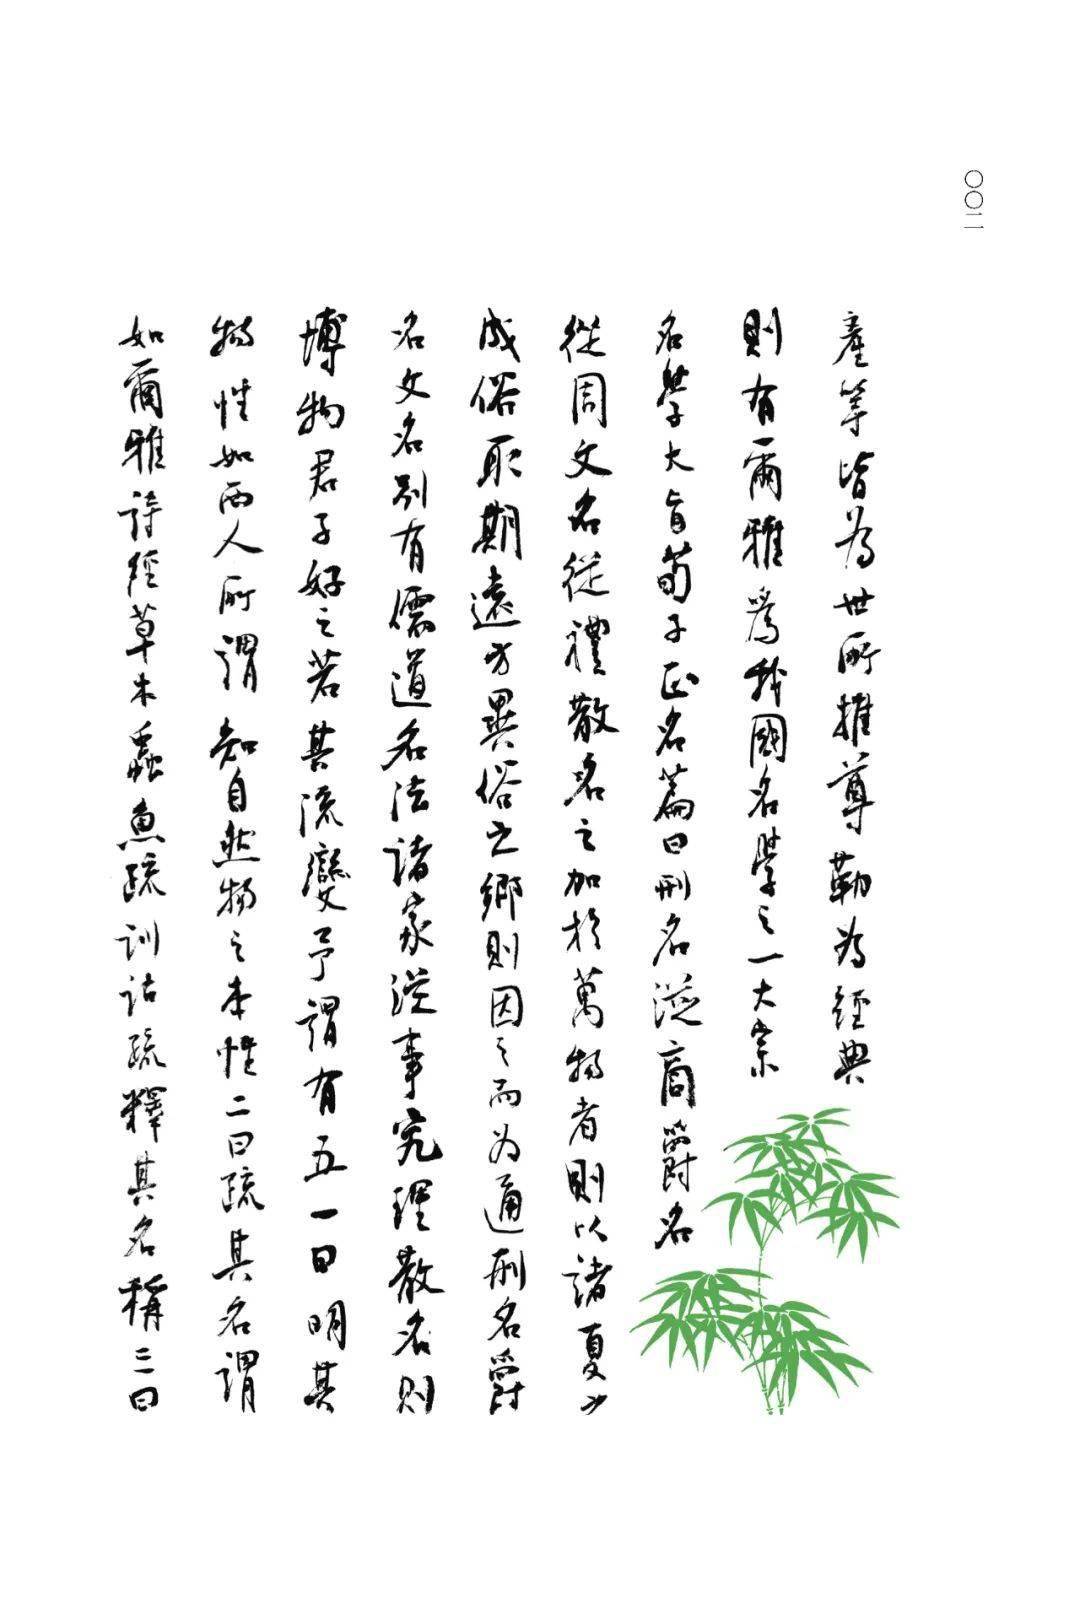 〇〇二
產等皆為世所推尊勒為經典
則有爾雅為我國名學之一大宗
名學大旨荀子正名篇曰刑名從商爵名
從周文名從禮散名之加於萬物者則以諸夏之
成俗取期遠方異俗之鄉則因之而為通刑名爵
名文名別有儒道名法諸家從事究理散名則
博物君子好之若其流變予謂有五一曰明其
物性如西人所謂知自然物之本性二曰疏其名謂
如爾雅詩經草木蟲魚疏訓詁疏釋其名稱三曰